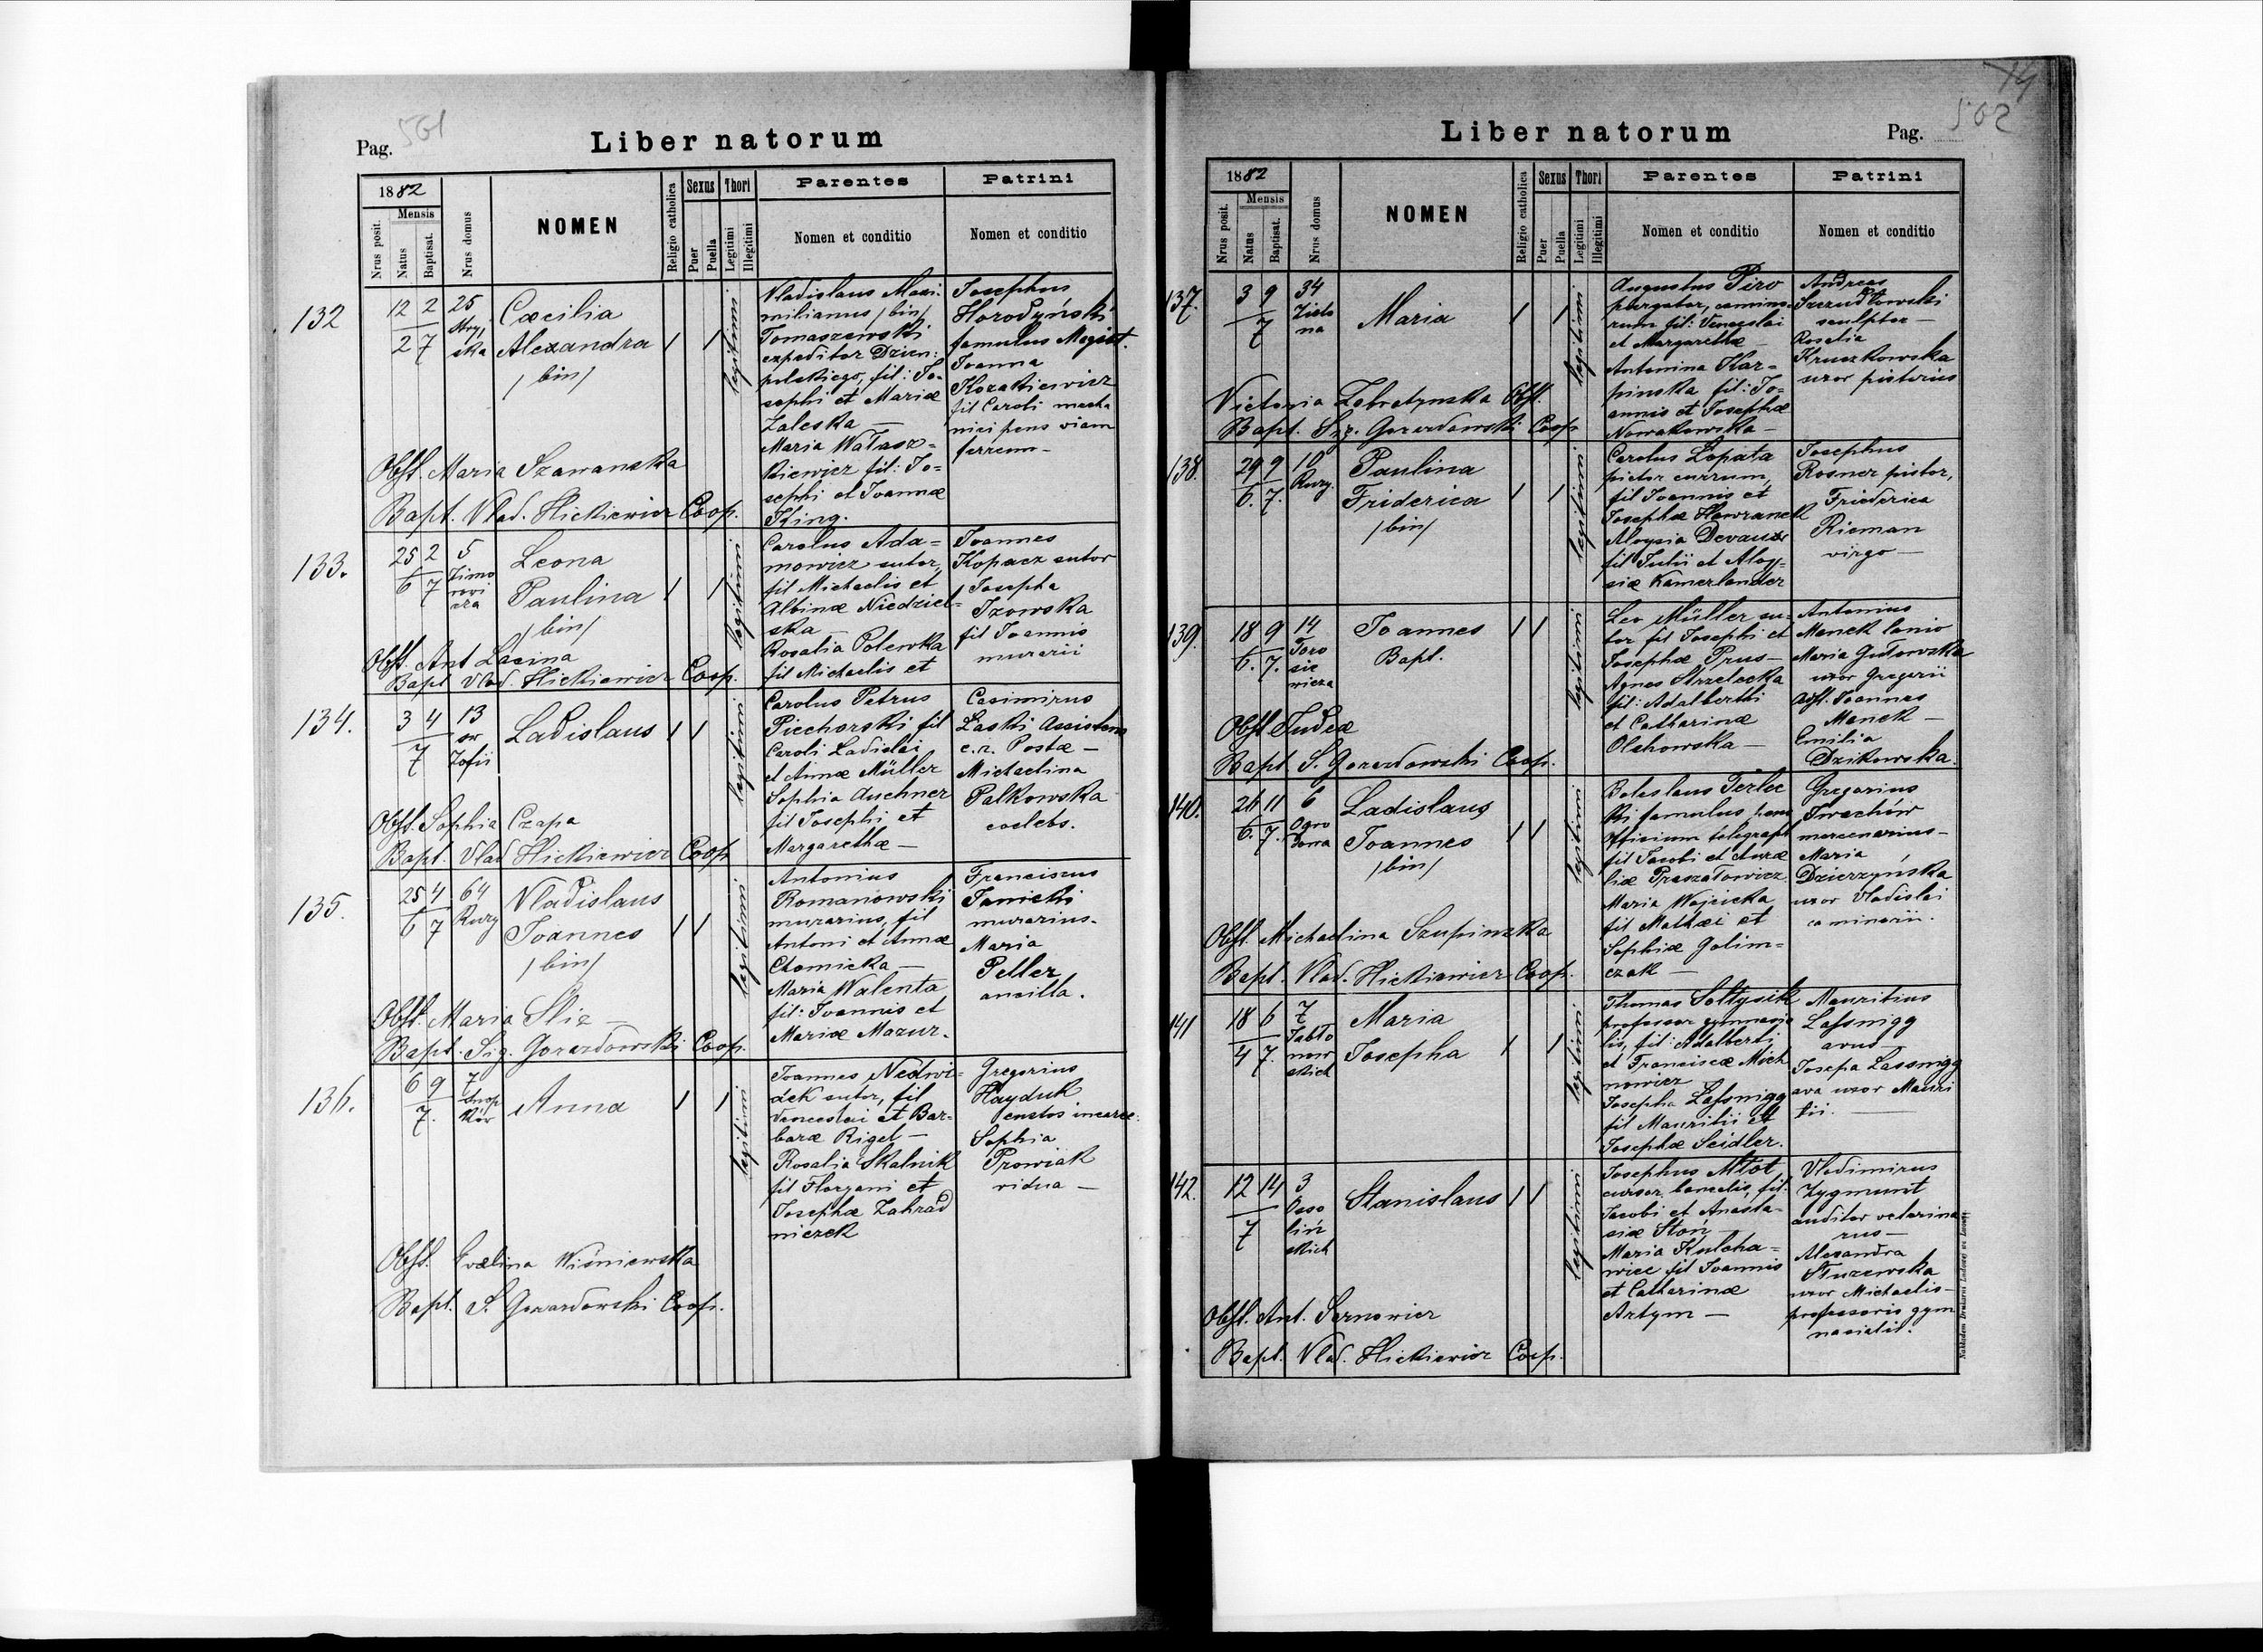 Pag. 561
Liber natorum
1882
Nrus posit.
Mensis
Natus
Baptisat.
Nrus domus
NOMEN
Religio catholica
Sexus
Puer
Puella
Thori
Legitimi
Illegitimi
Parentes
Nomen et conditio
Patrini
Nomen et conditio
132
12 2
2 7
25
Stryj
ska
Cæcilia
Alexandra
/bin/
legitimi
Vladislaus Maxi:
milianus /bin/
Tomaszewski
expeditor Dzien:
polskiego, fil: Jo-
sephi et Mariæ
Zaleska —
Maria Wałasz-
kiewicz fil: Jo-
sephi et Joannæ
King.
Josephus
Horodyński
famulus Magist.
Joanna
Kozakiewicz
fil Caroli mecha
nici pens viam
ferream-
Obst. Maria Szawanska
Bapt. Vlad. Hickiewicz Coop.
133.
25 2
6 7
5
Zimo
rowi
cza
Leona
Paulina
/bin/
legitimi
Carolus Ada=
mowicz sutor,
fil Michaelis et
Albinæ Niedziel-
ska
Rosalia Polewka
fil Michaelis et
Joannes
Kopacz sutor
Josepha
Izowska
fil Joannis
murarii
Obst. Ant Lacina
Bapt Vlad. Hickiewicz Coop.
134.
3 4
7
13
św
Zofii
Ladislaus
legitimi
Carolus Petrus
Piechorski fil
Caroli Ladislai
et Annæ Müller
Sophia Auchner
fil Josephi et
Margarethæ —
Casimirus
Laski Assistens
c.r. Postæ —
Michaelina
Palkowska
coelebs.
Obst. Sophia Czapa
Bapt. Vlad Hickiewicz Coop
135.
25 4
6 7
64
Rury
Vladislaus
Joannes
/bin/
legitimi
Antonius
Romanowski
murarius, fil
Antoni et Annæ
Chomicka —
Maria Walenta
fil: Joannis et
Mariæ Mazur.
Franciscus
Janicki
murarius-
Maria
Peller
ancilla.
Obst. Maria Śliz —
Bapt. Sig. Gorazdowski Coop.
136.
6 9
7.
7
Snop
ków
Anna
legitimi
Joannes Nedwi=
dek sutor, fil
Venceslai et Bar-
baræ Rigel —
Rosalia Skalnik
fil Floryani et
Josephæ Zahrad
niczek
Gregorius
Hayduk
custos incarce.
Sophia
Prowiak
vidua —
Obst. Evelina Wiśniewska
Bapt. S. Gorazdowski Coop.
74
Liber natorum
Pag. 562
1882
Nrus posit.
Mensis
Natus
Baptisat.
Nrus domus
NOMEN
Religio catholica
Sexus
Puer
Puella
Thori
Legitimi
Illegitimi
Parentes
Nomen et conditio
Patrini
Nomen et conditio
137.
3 9
7
34
Zielo
na
Maria
legitimi
Augustus Piro
purgator, camino-
rum fil: Venceslai
et Margarethæ —
Antonina Kar-
pinska fil: Jo-
annis et Josephæ
Nowakowska —
Andreas
sculptor —
Rosalia
Kruszkowska
uxor pistorius
Victoria Zebratynska Obst.
Bapt. Sig. Gorazdowski Coop
138.
29 9
6. 7.
10
Rury.
Paulina
Friderica
/bin/
legitimi
Carolus Lopata
pictor currum,
fil Joannis et
Josephæ Hawranek
Aloysia Devaux
fil Julii et Aloy-
siæ Kamerlander
Josephus
Rosner pistor,
Friederica
Rieman
virgo —
139.
18 9
6. 7.
14
Toro
sie
wicza
Joannes
Bapt.
legitimi
Leo Müller su-
tor fil Josephi et
Josephæ Prus —
Agnes Strzelecka
fil: Adalberthi
et Catharinæ
Olchowska —
Antonius
Manek lanio
Maria Gutowska
uxor Gregorii
Asst. Joannes
Manek —
Emilia
Dzikowska.
Obst Judea
Bapt S. Gorazdowski Coop.
140.
26 11
6. 7.
6
Ogro
dowa
Ladislaus
Joannes
/bin/
legitimi
Boleslaus Terlec
ki famulus pens
Officium telegraph
fil Jacobi et Ama
liæ Praszałowicz
Maria Wojcicka
fil Mathæi et
Sophiæ Golim=
czak —
Gregorius
Twachów
mercenarius-
Maria
Dzierzyńska
uxor Vladislai
caminarii.
Obst. Michaelina Szupinska
Bapt. Vlad. Hickiewicz Coop.
141
18 6
4 7.
7
Jabło
now
skich
Maria
Josepha
legitimi
Thomas Sołtysik
professor gymnasia
lis, fil: Adalberti
et Franciscæ Mich
nowicz
Josepha Lassnigg
fil Mauritii et
Josephæ Seidler.
Mauritius
Lassnigg
avus —
Josepa Lassnigg
ava uxor Mauri
tii. —
142.
12 14
7
3
Osso
liń
skich
Stanislaus
legitimi
Josephus Młot
cursor bancalis, fil:
Jacobi et Anasta-
siæ Stoń
Maria Kulcha=
wice fil Joannis
et Catharinæ
Artym —
Vladimirus
Zygmunt
auditor veterina
rus —
Alexandra
Stuzewska
uxor Michaelis-
professoris gym
nasialis.
Obst. Ant. Sernowicz
Bapt. Vlad. Hickiewicz Coop.
Nakładem Drukarni Ludowej we Lwowie